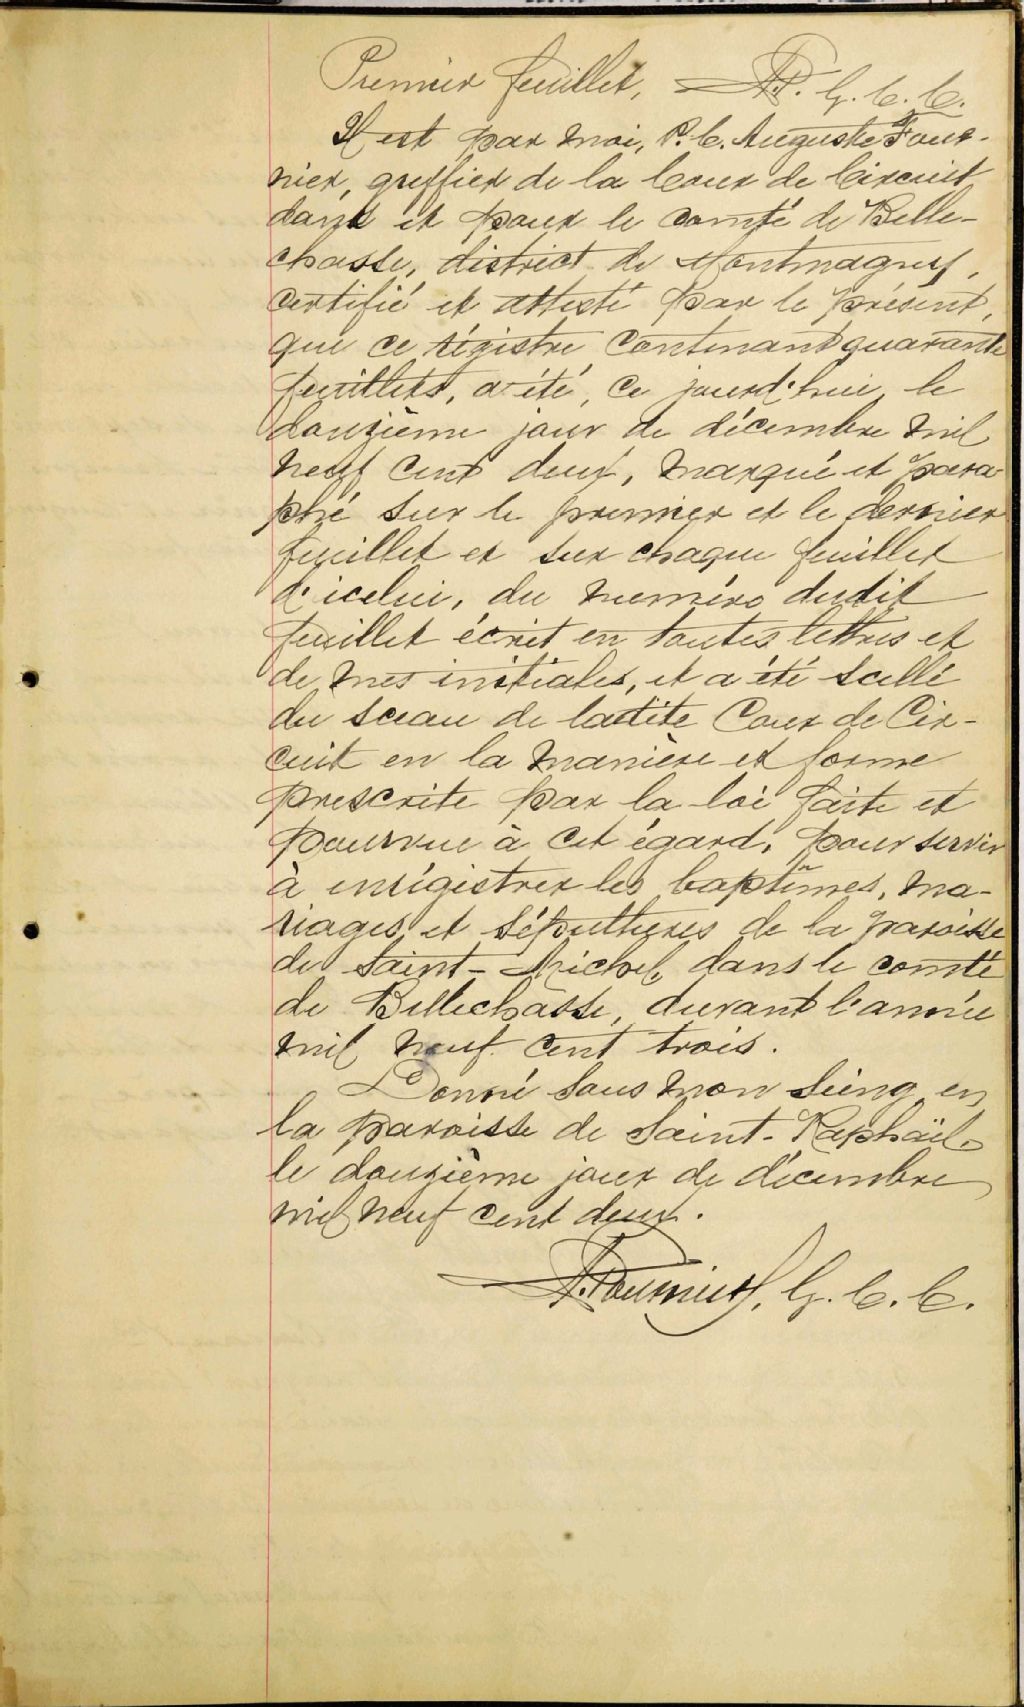 Premier feuillet, G. C. C.
Il est par moi, P. C. Auguste Four-
nier, greffier de la Cour de Circuit
dans et pour le comté de Belle-
chasse, district de Montmagny,
certifié et attesté par le présent,
que ce régistre contenant quarante
feuillets, a été, ce jourd'hui, le
douzième jour de décembre mil
neuf cent deux, marqué et para-
phé sur le premier et le dernier
feuillet et sur chaque feuillet
d'icelui, du numéro dudit
feuillet écrit en toutes lettres et
de mes initiales, et a été scellé
du sceau de ladite Cour de Cir-
cuit en la manière et forme
prescrite par la loi faite et
pourvue à cet égard, pour servir
à enrégistrer les baptêmes, ma-
riages et sépultures de la paroisse
de Saint-Michel, dans le comté
de Bellechasse, durant l'année
mil neuf cent trois.
Donné sous mon seing en
la paroisse de Saint-Raphaël
le douzième jour de décembre
mil neuf cent deux.
A. Fournier, G. C. C.